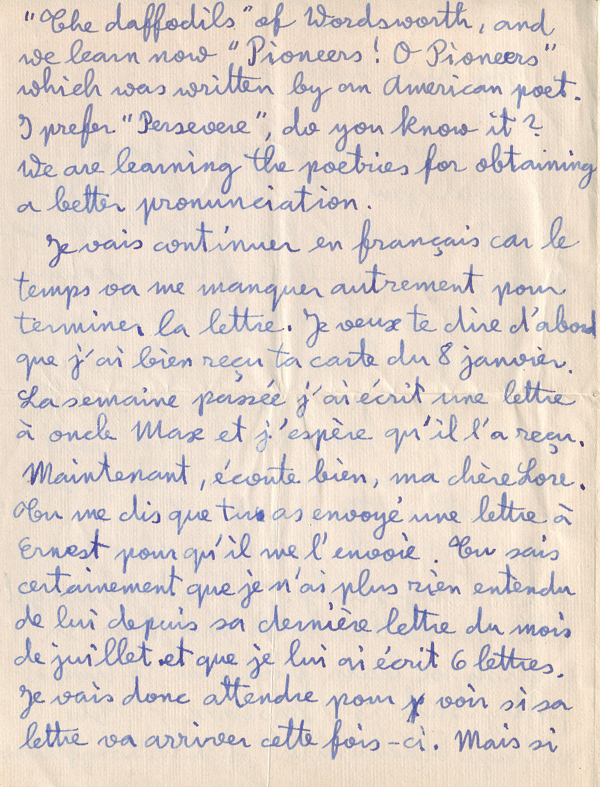 "The daffodils" of Wordsworth, and
we learn now "Pioneers! O Pioneers"
which was written by an American poet.
I prefer "Persevere", do you know it?
We are learning the poetries for obtaining
a better pronunciation.
Je vais continuer en français car le
temps va me manquer autrement pour
terminer la lettre. Je veux te dire d'abord
que j'ai bien reçu ta carte du 8 janvier.
La semaine passée j'ai écrit une lettre
à oncle Max et j'espère qu'il l'a reçu.
Maintenant, écoute bien, ma chère Lore.
Tu me dis que tu as envoyé une lettre à
Ernest pour qu'il me l'envoie. Tu sais
certainement que je n'ai plus rien entendu
de lui depuis sa dernière lettre du mois
de juillet et que je lui ai écrit 6 lettres.
Je vais donc attendre pour voir si sa
lettre va arriver cette fois-ci. Mais si